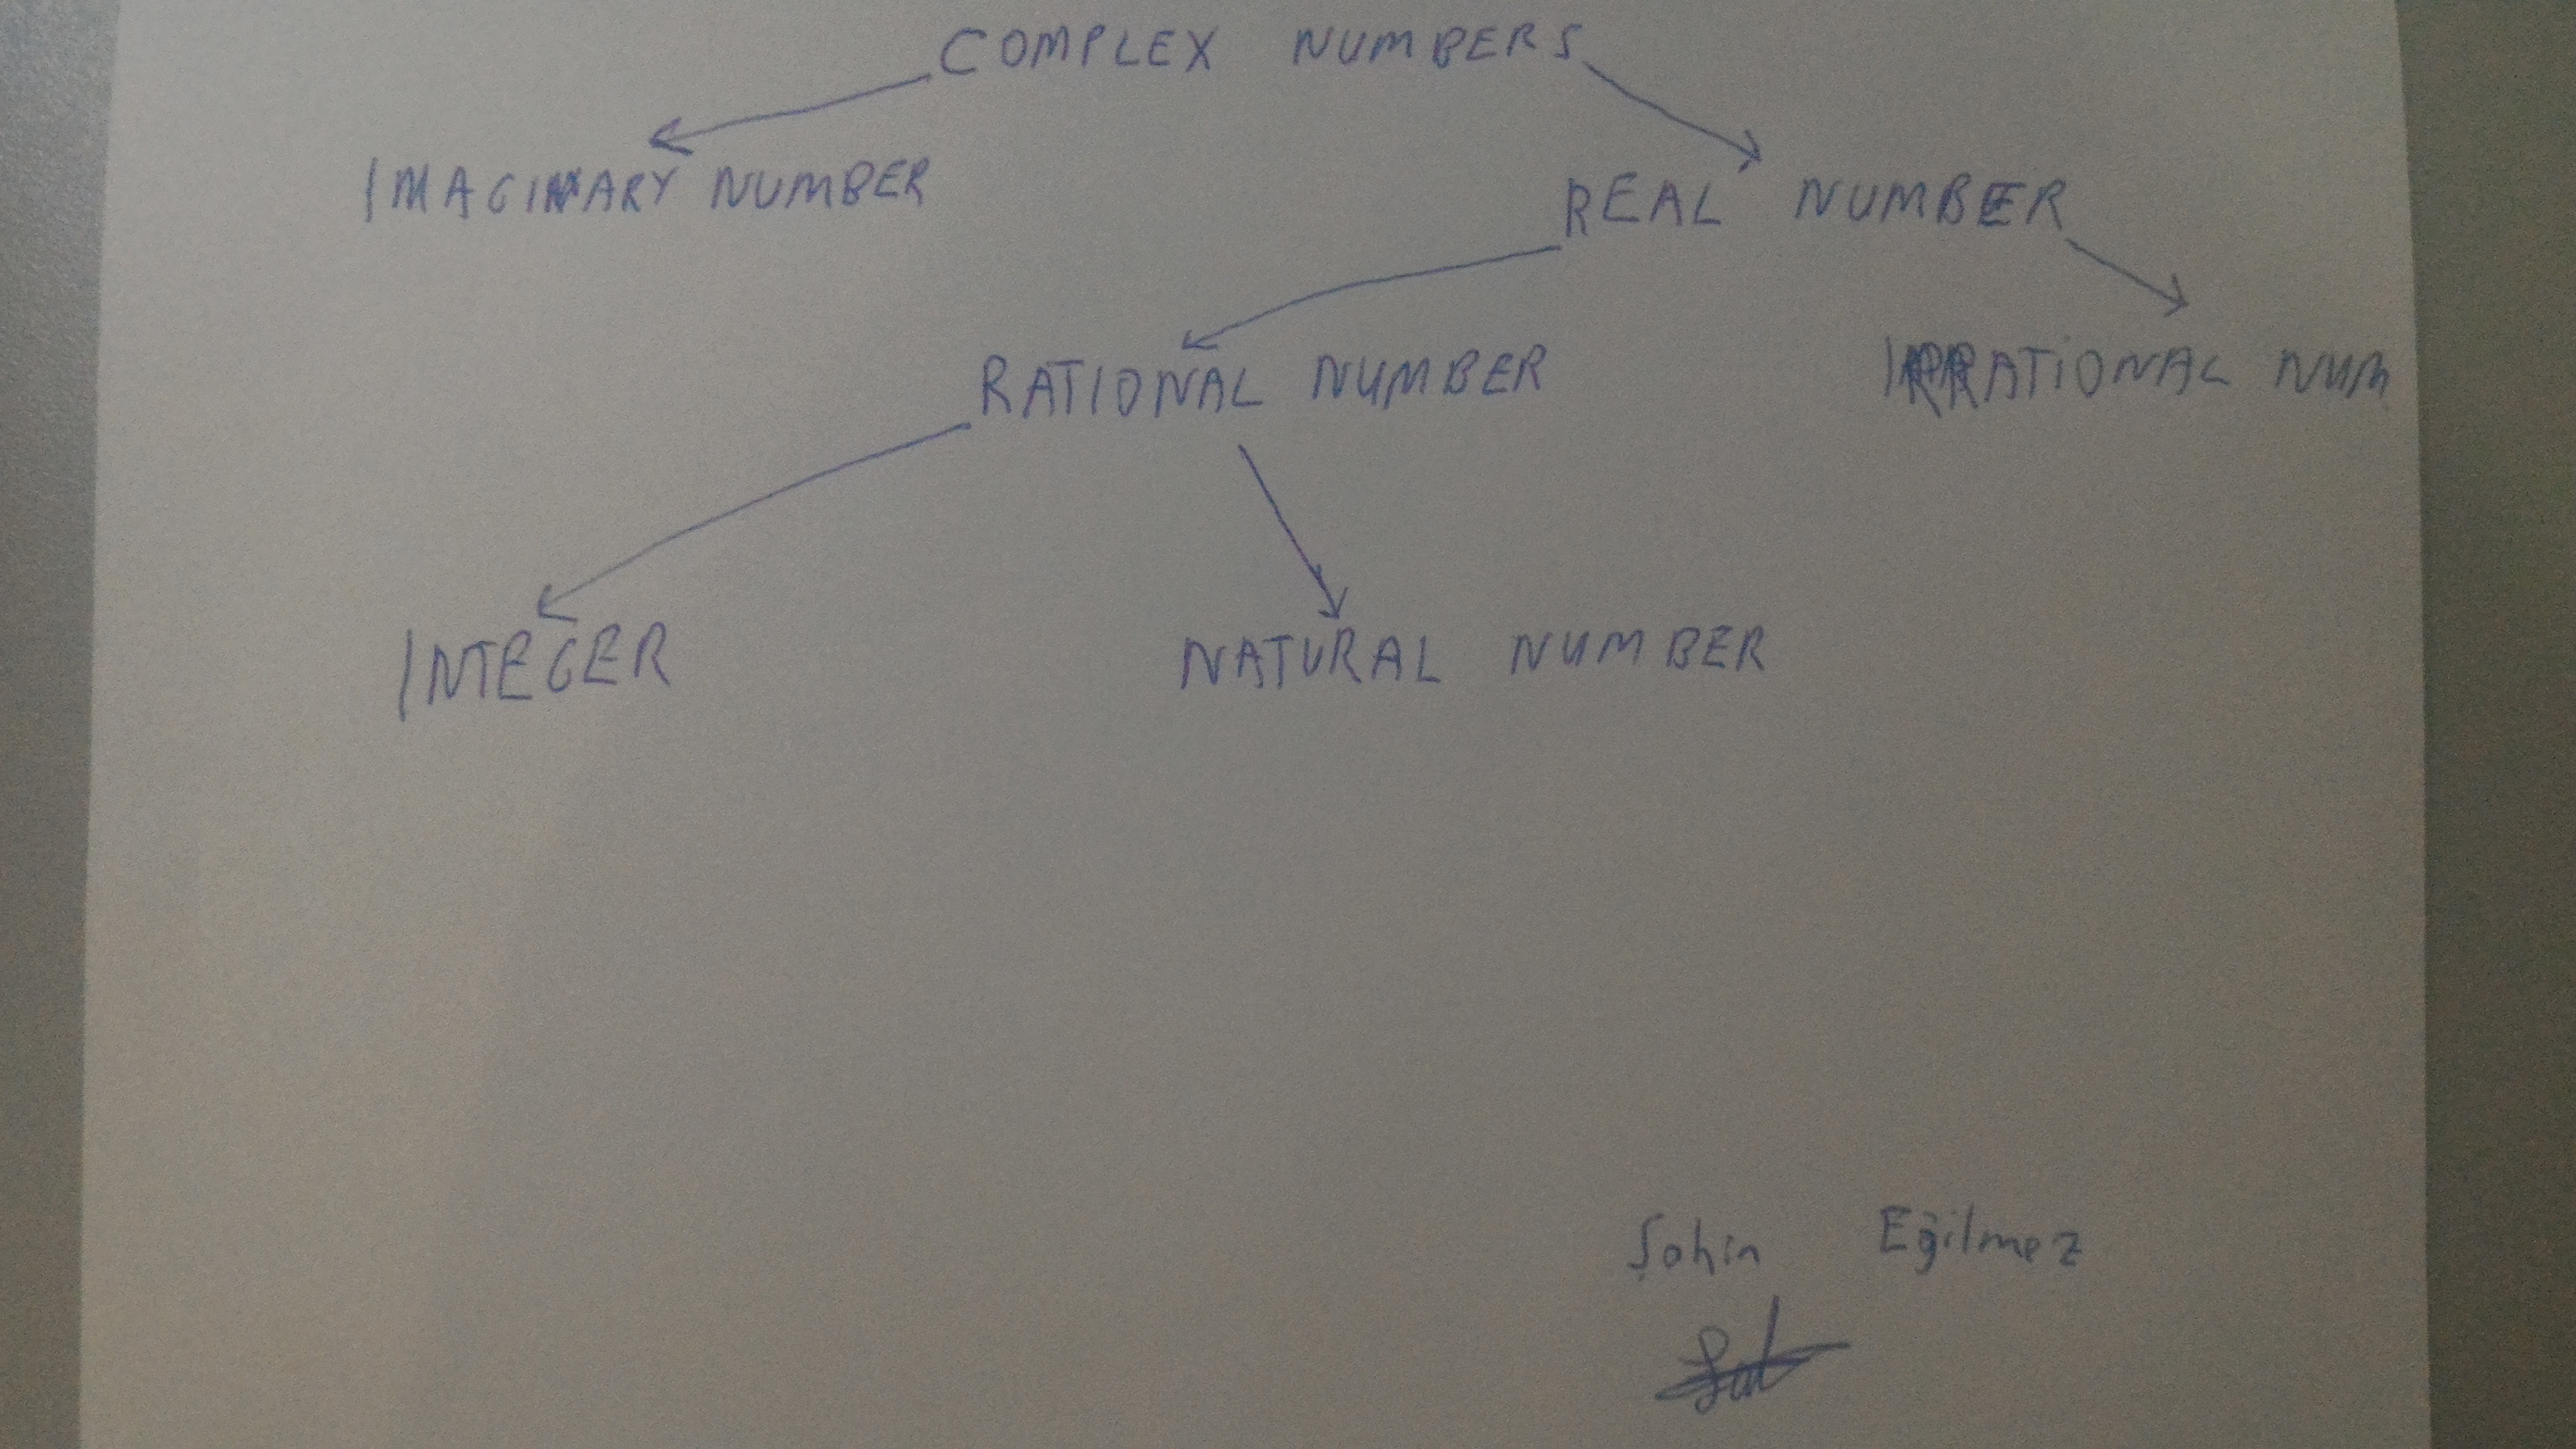 COMPLEX NUMBERS
IMAGINARY NUMBER
REAL NUMBER
RATIONAL NUMBER
IRRATIONAL NUM
INTEGER
NATURAL NUMBER
Şahin Eğilmez